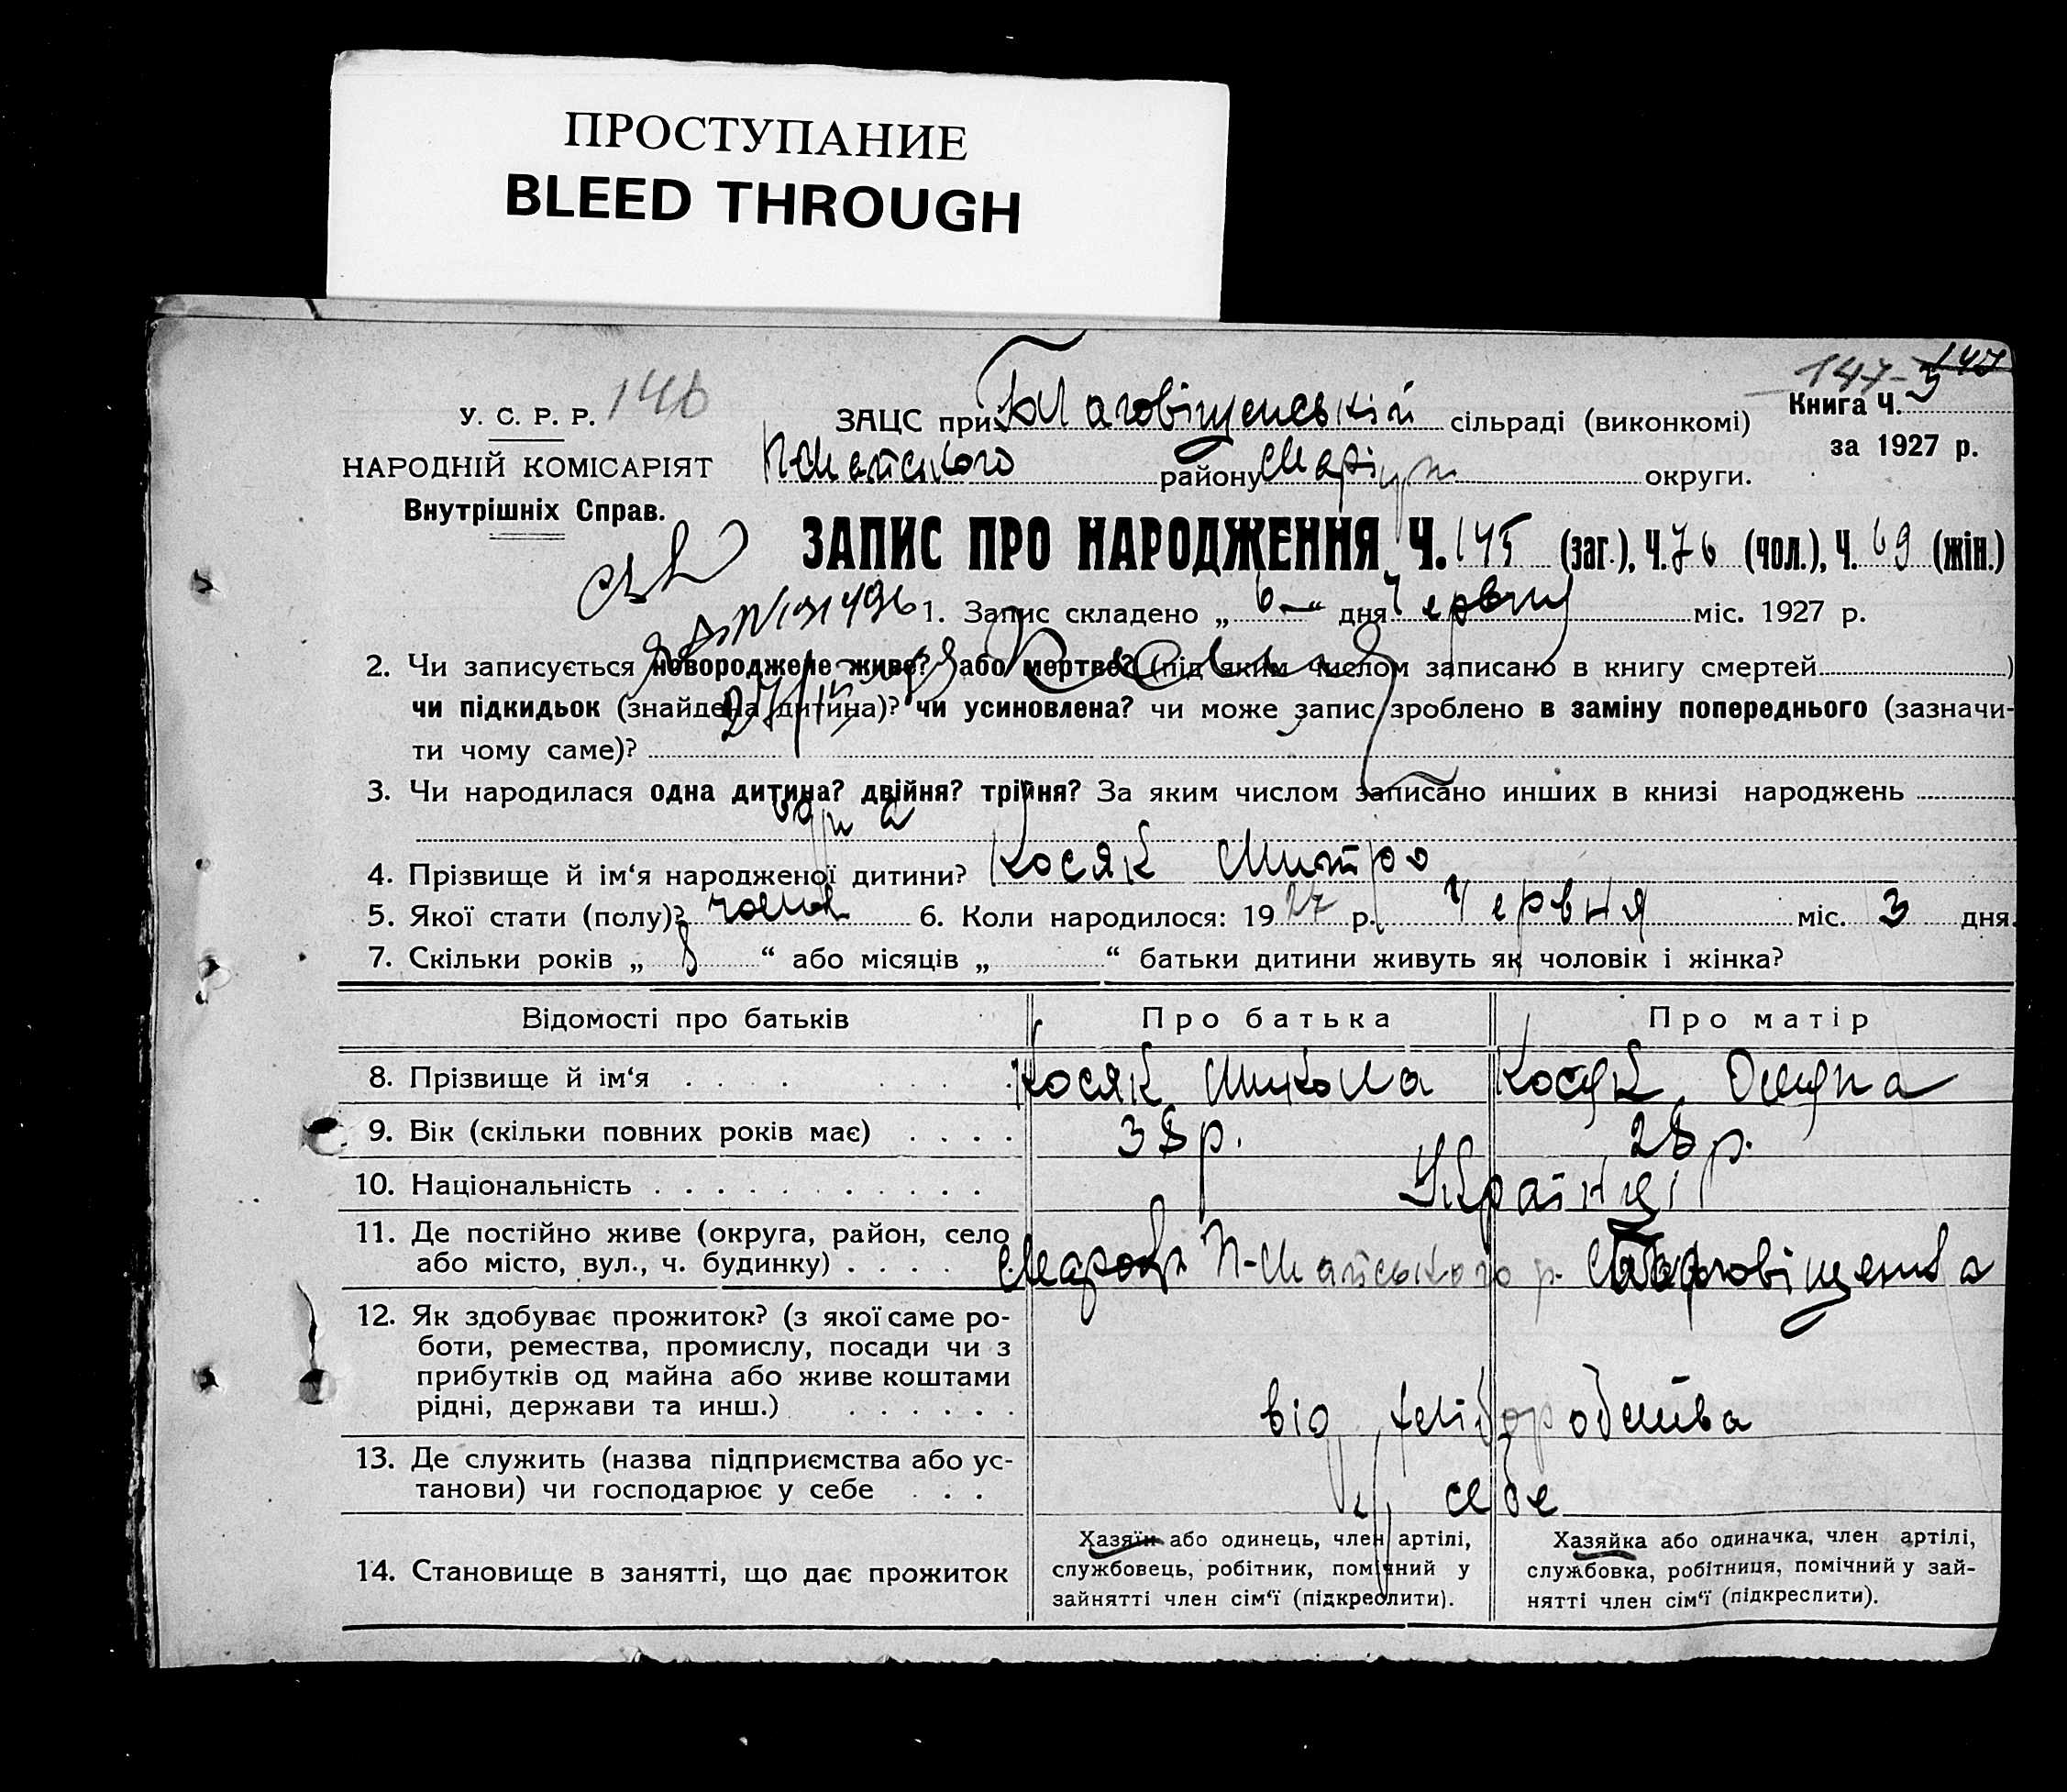 ПРОСТУПАНИЕ
BLEED THROUGH
147-
У. С. Р. Р. 146
ЗАЦС при Благовіщенській сільраді (виконкомі) Книга Ч. 3
НАРОДНІЙ КОМІСАРІЯТ П-Майського району Маріуп округи. за 1927 р.
Внутрішніх Справ.
ЗАПИС ПРО НАРОДЖЕННЯ Ч. 145 (заг.), Ч. 76 (чол.), Ч. 69 (жін.)
1. Запис складено „ 6 “ дня Червня міс. 1927 р.
2. Чи записується новороджене живе? або мертве? (під яким числом записано в книгу смертей )
чи підкидьок (знайдена дитина)? чи усиновлена? чи може запис зроблено в заміну попереднього (зазначи-
ти чому саме)?
3. Чи народилася одна дитина? двійня? трійня? За яким числом записано инших в книзі народжень
одна
4. Прізвище й ім‘я народженої дитини? Косяк Митро
5. Якої стати (полу)? чолов 6. Коли народилося: 1927 р. Червня міс. 3 дня.
7. Скільки років „ 8 “ або місяців „ “ батьки дитини живуть як чоловік і жінка?
Відомості про батьків Про батька Про матір
8. Прізвище й ім‘я . . . . . . . Косяк Микола Косяк
9. Вік (скільки повних років має) . . . . 38 р. 28 р.
10. Національність . . . . . . . . . . . Українці
11. Де постійно живе (округа, район, село
або місто, вул., ч. будинку) . . . . П-Майського р. Благовіщенка
12. Як здобуває прожиток? (з якої саме ро-
боти, ремества, промислу, посади чи з
прибутків од майна або живе коштами
рідні, держави та инш.) . . . . . . від хліборобства
13. Де служить (назва підприємства або ус-
танови) чи господарює у себе . . . у себе
14. Становище в занятті, що дає прожиток
Хазяїн або одинець, член артілі,
службовець, робітник, помічний у
зайнятті член сім‘ї (підкреслити).
Хазяйка або одиначка, член артілі,
службовка, робітниця, помічний у зай-
нятті член сім‘ї (підкреслити).